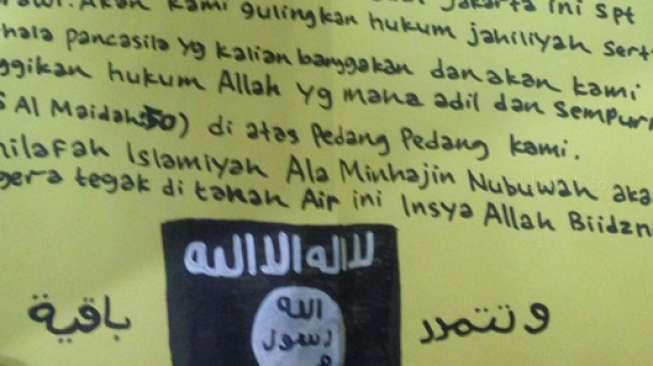 Akan kami gulingkan hukum jahiliyah
Jakarta ini spt
pancasila yg kalian banggakan dan akan kami
hukum Allah yg maha adil dan sempur
Al Maidah:50) di atas Pedang Pedang kami.
Islamiyah Ala Minhajin Nubuwah aka
tegak di tanah Air ini Insya Allah Biidzn
لا اله الا الله
الله
رسول
باقية
و تتمدد